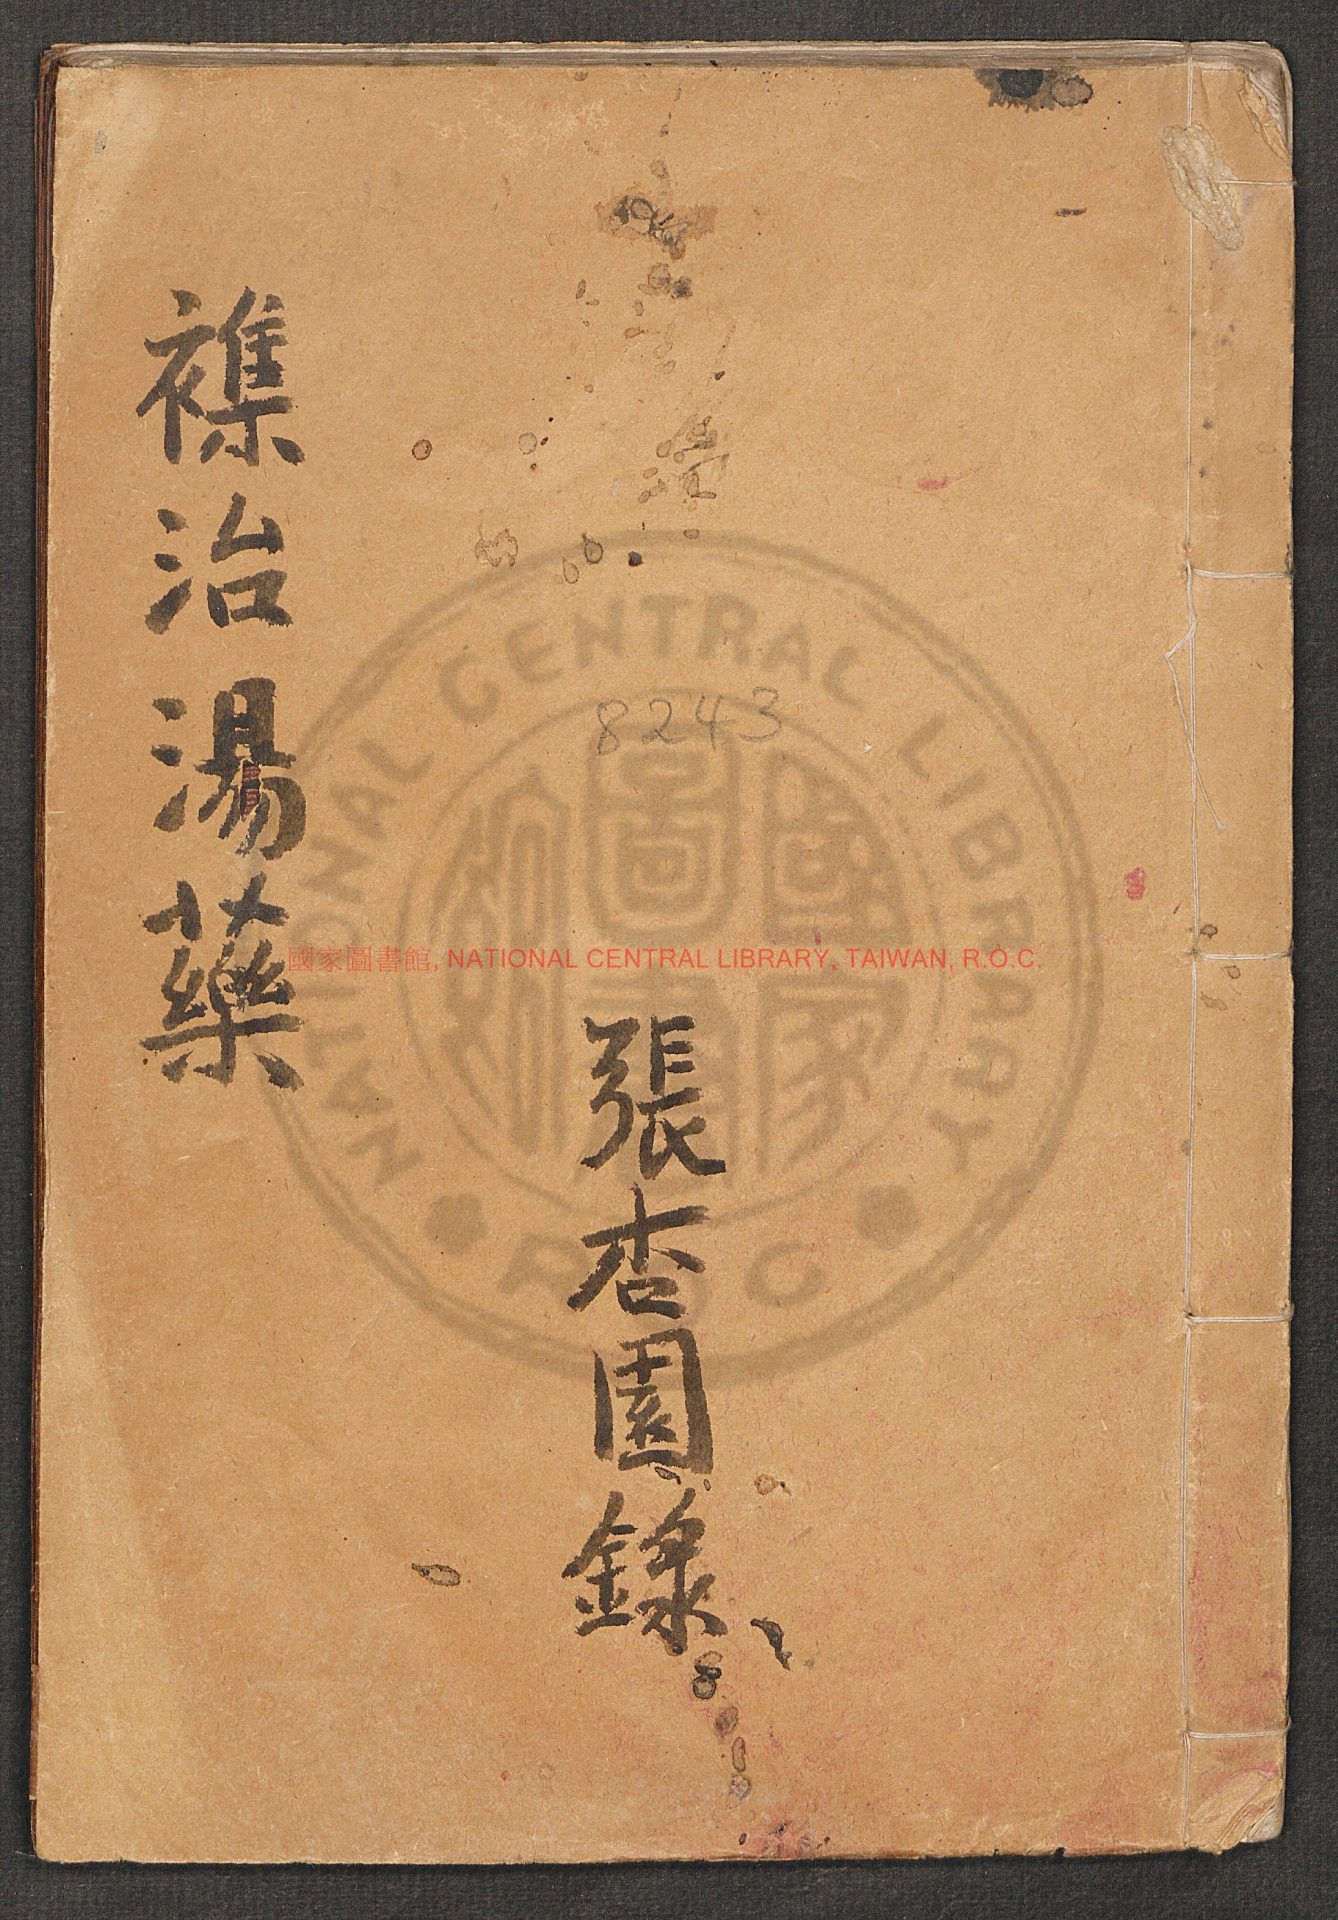 襍治湯藥
張杏園錄
8243
國家圖書館, NATIONAL CENTRAL LIBRARY, TAIWAN, R.O.C.
NATIONAL CENTRAL LIBRARY
R O C
國家圖書館